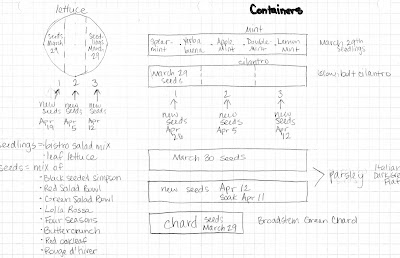 lettuce
Containers
seeds March 29
seedlings March 29
1 2 3
new seeds Apr 19
new seeds Apr 5
new seeds Apr 12
seedlings = bistro salad mix
· leaf lettuce
seeds = mix of
· Black seeded simpson
· Red Salad Bowl
· Green Salad Bowl
· Lolla Rossa
· Four Seasons
· Buttercrunch
· Red oakleaf
· Rouge d'hiver
mint
Spearmint · Yerba buena · Apple mint · Double mint · Lemon mint
March 29th seedlings
cilantro
March 29 seeds
slow-bolt cilantro
1 2 3
new seeds
new seeds Apr 5
new seeds Apr 12
March 30 seeds
new seeds Apr 12
Soak Apr 11
parsley
Italian
Dark Green
Flat
chard seeds March 29
Broadstem Green Chard